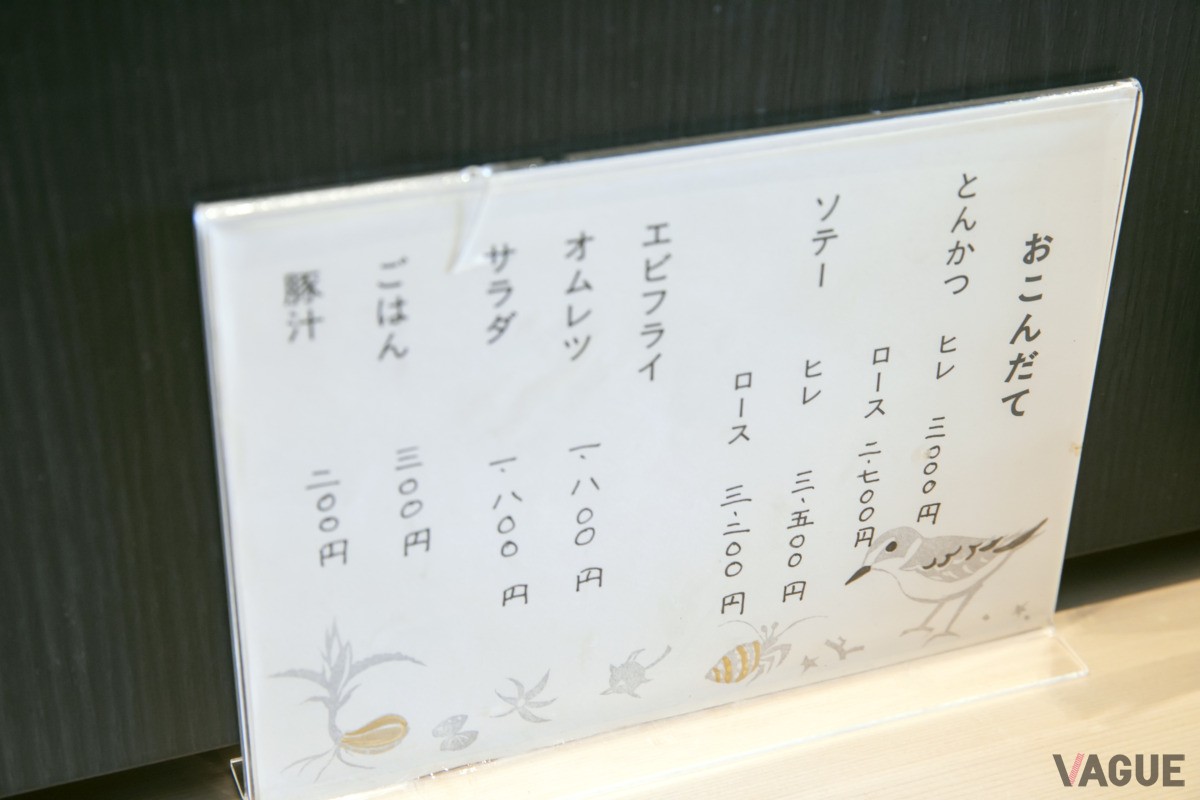 おこんだて
とんかつ ヒレ 三〇〇〇円
ロース 二.七〇〇円
ソテー ヒレ 三.五〇〇円
ロース 三.二〇〇円
エビフライ
オムレツ 一.八〇〇円
サラダ 一.八〇〇円
ごはん 三〇〇円
豚汁 二〇〇円
VAGUE